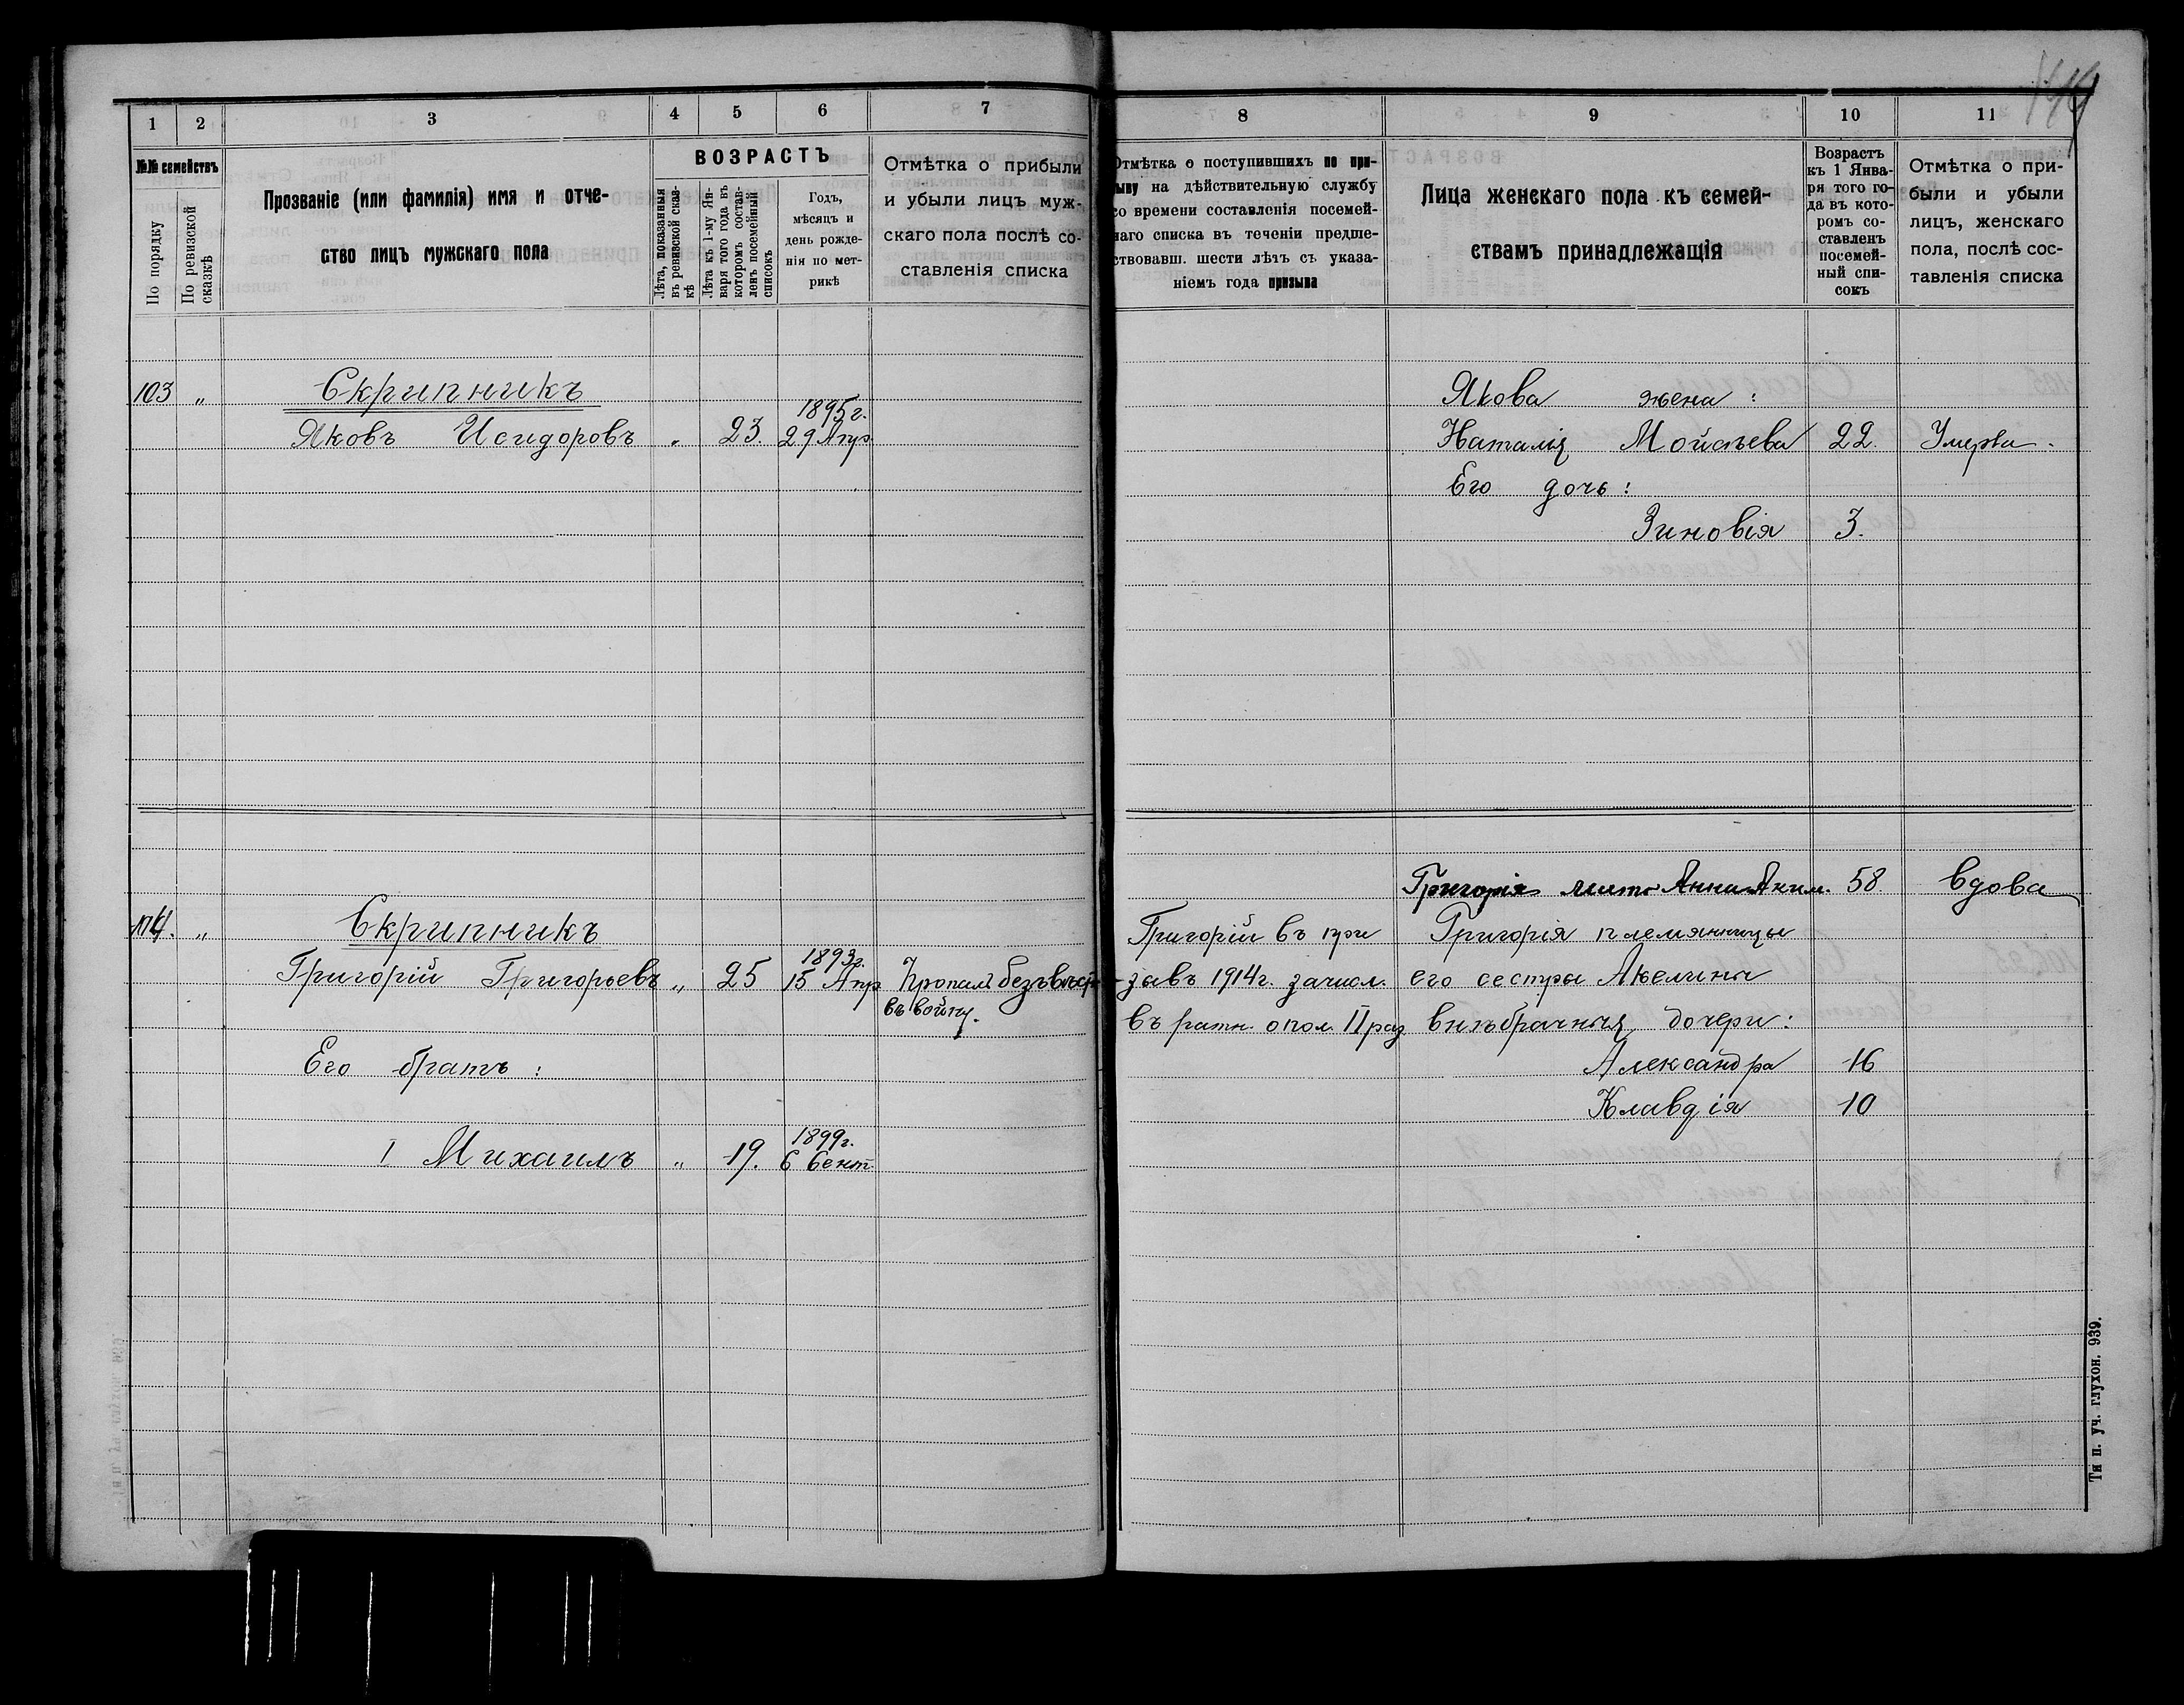 1 2 3 4 5 6 7
№№ семействъ
По порядку
По ревизской сказкѣ
Прозваніе (или фамилія) имя и отче-
ство лицъ мужскаго пола
ВОЗРАСТЪ
Лѣта, показанныя
въ ревизской сказ-
кѣ
Лѣта къ 1-му Ян-
варя того года въ
которомъ состав-
ленъ посемейный
списокъ
Годъ,
мѣсяцъ и
день рожде-
нія по мет-
рикѣ
Отмѣтка о прибыли
и убыли лицъ муж-
скаго пола послѣ со-
ставленія списка
103 „ Скрипникъ
1895 г.
Яковъ Исидоровъ „ 23. 29 Апр.
„ Скрипникъ
1893 г.
Григорій Григорьевъ „ 25 15 Апр Пропалъ безъ вѣст
въ войну.
Его братъ :
1899 г.
1 Михаилъ „ 19. 6 Сент.
8 9 10 11
Отмѣтка о поступившихъ по при-
зыву на дѣйствительную службу
со времени составленія посемей-
наго списка въ теченіи предше-
ствовавш. шести лѣтъ съ указа-
ніемъ года призыва
Лица женскаго пола къ семей-
ствамъ принадлежащія
Возрастъ
къ 1 Янва-
ря того го-
да въ кото-
ромъ со-
ставленъ
посемей-
ный спи-
сокъ
Отмѣтка о при-
были и убыли
лицъ, женскаго
пола, послѣ сос-
тавленія списка
Якова жена :
Наталія Мойсѣева 22. Умерла.
Его дочь :
Зиновія 3.
Григорія мать Анна Аким. 58. вдова
Григорій въ при Григорія племянницы
зывъ 1914 г. зачисл. его сестры Акелины
въ ратн. опол. II раз внѣбрачныя дочери :
Александра 16
Клавдія 10
Тип. уч. глухон. 939.